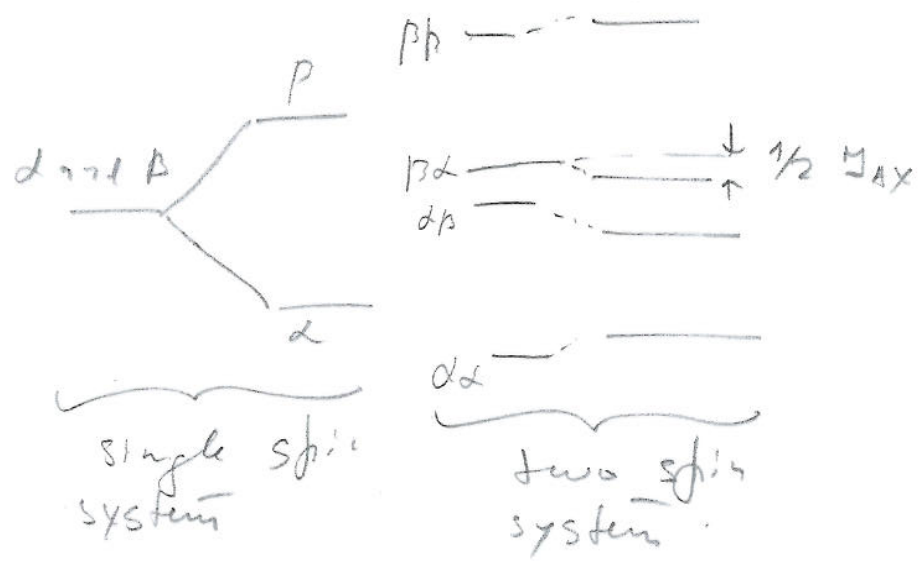 ββ
β
α and β
βα
αβ
1/2 J_AX
α
αα
single spin
system
two spin
system